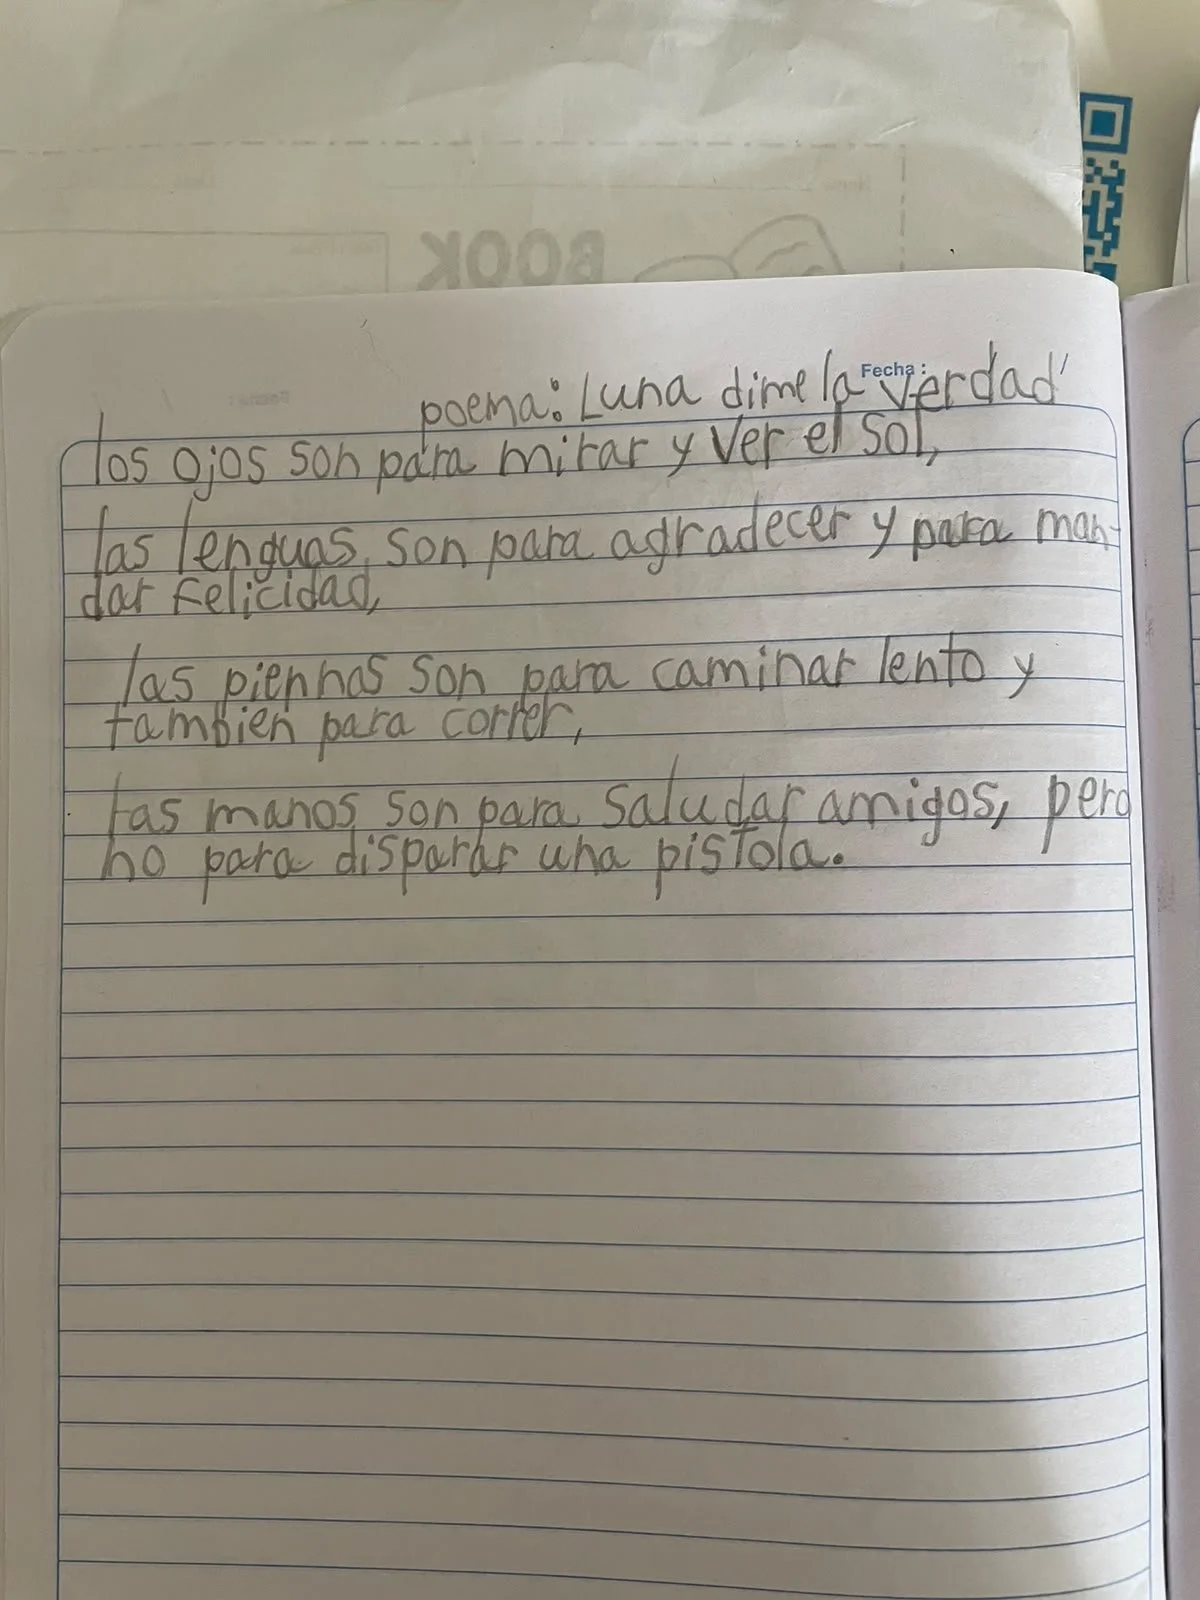 BOOK
Fecha:
poema: Luna dime la verdad
los ojos son para mirar y ver el sol,
las lenguas son para agradecer y para man-
dar Felicidad,
las piernas son para caminar lento y
tambien para correr,
las manos son para saludar amigos, pero
no para disparar una pistola.